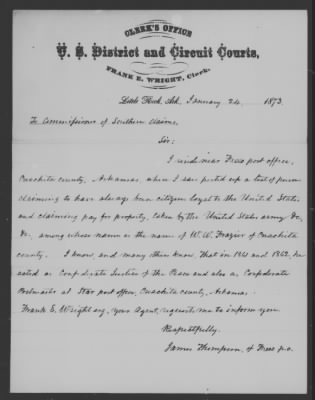 CLERK'S OFFICE
U. S. District and Circuit Courts,
FRANK E. WRIGHT, Clerk.
Little Rock, Ark., January 24 1873.
To Commissioners of Southern Claims,
Sir;
I reside near Freeo post office,
Ouachita county, Arkansas, where I saw posted up a list of persons
claiming to have always been citizens loyal to the United States
and claiming pay for property, taken by the United States army &c,
&c, among whose names is the name of W. W. Frazier of Ouachita
county. I know, and many others know, that in 1861 and 1862, he
acted as Confederate Justice of the Peace and also a Confederate
Postmaster at post office, Ouachita county, Arkansas.
Frank E. Wright esq, your Agent, requests me to inform you.
Respectfully,
James Thompson, of Freeo p.o.